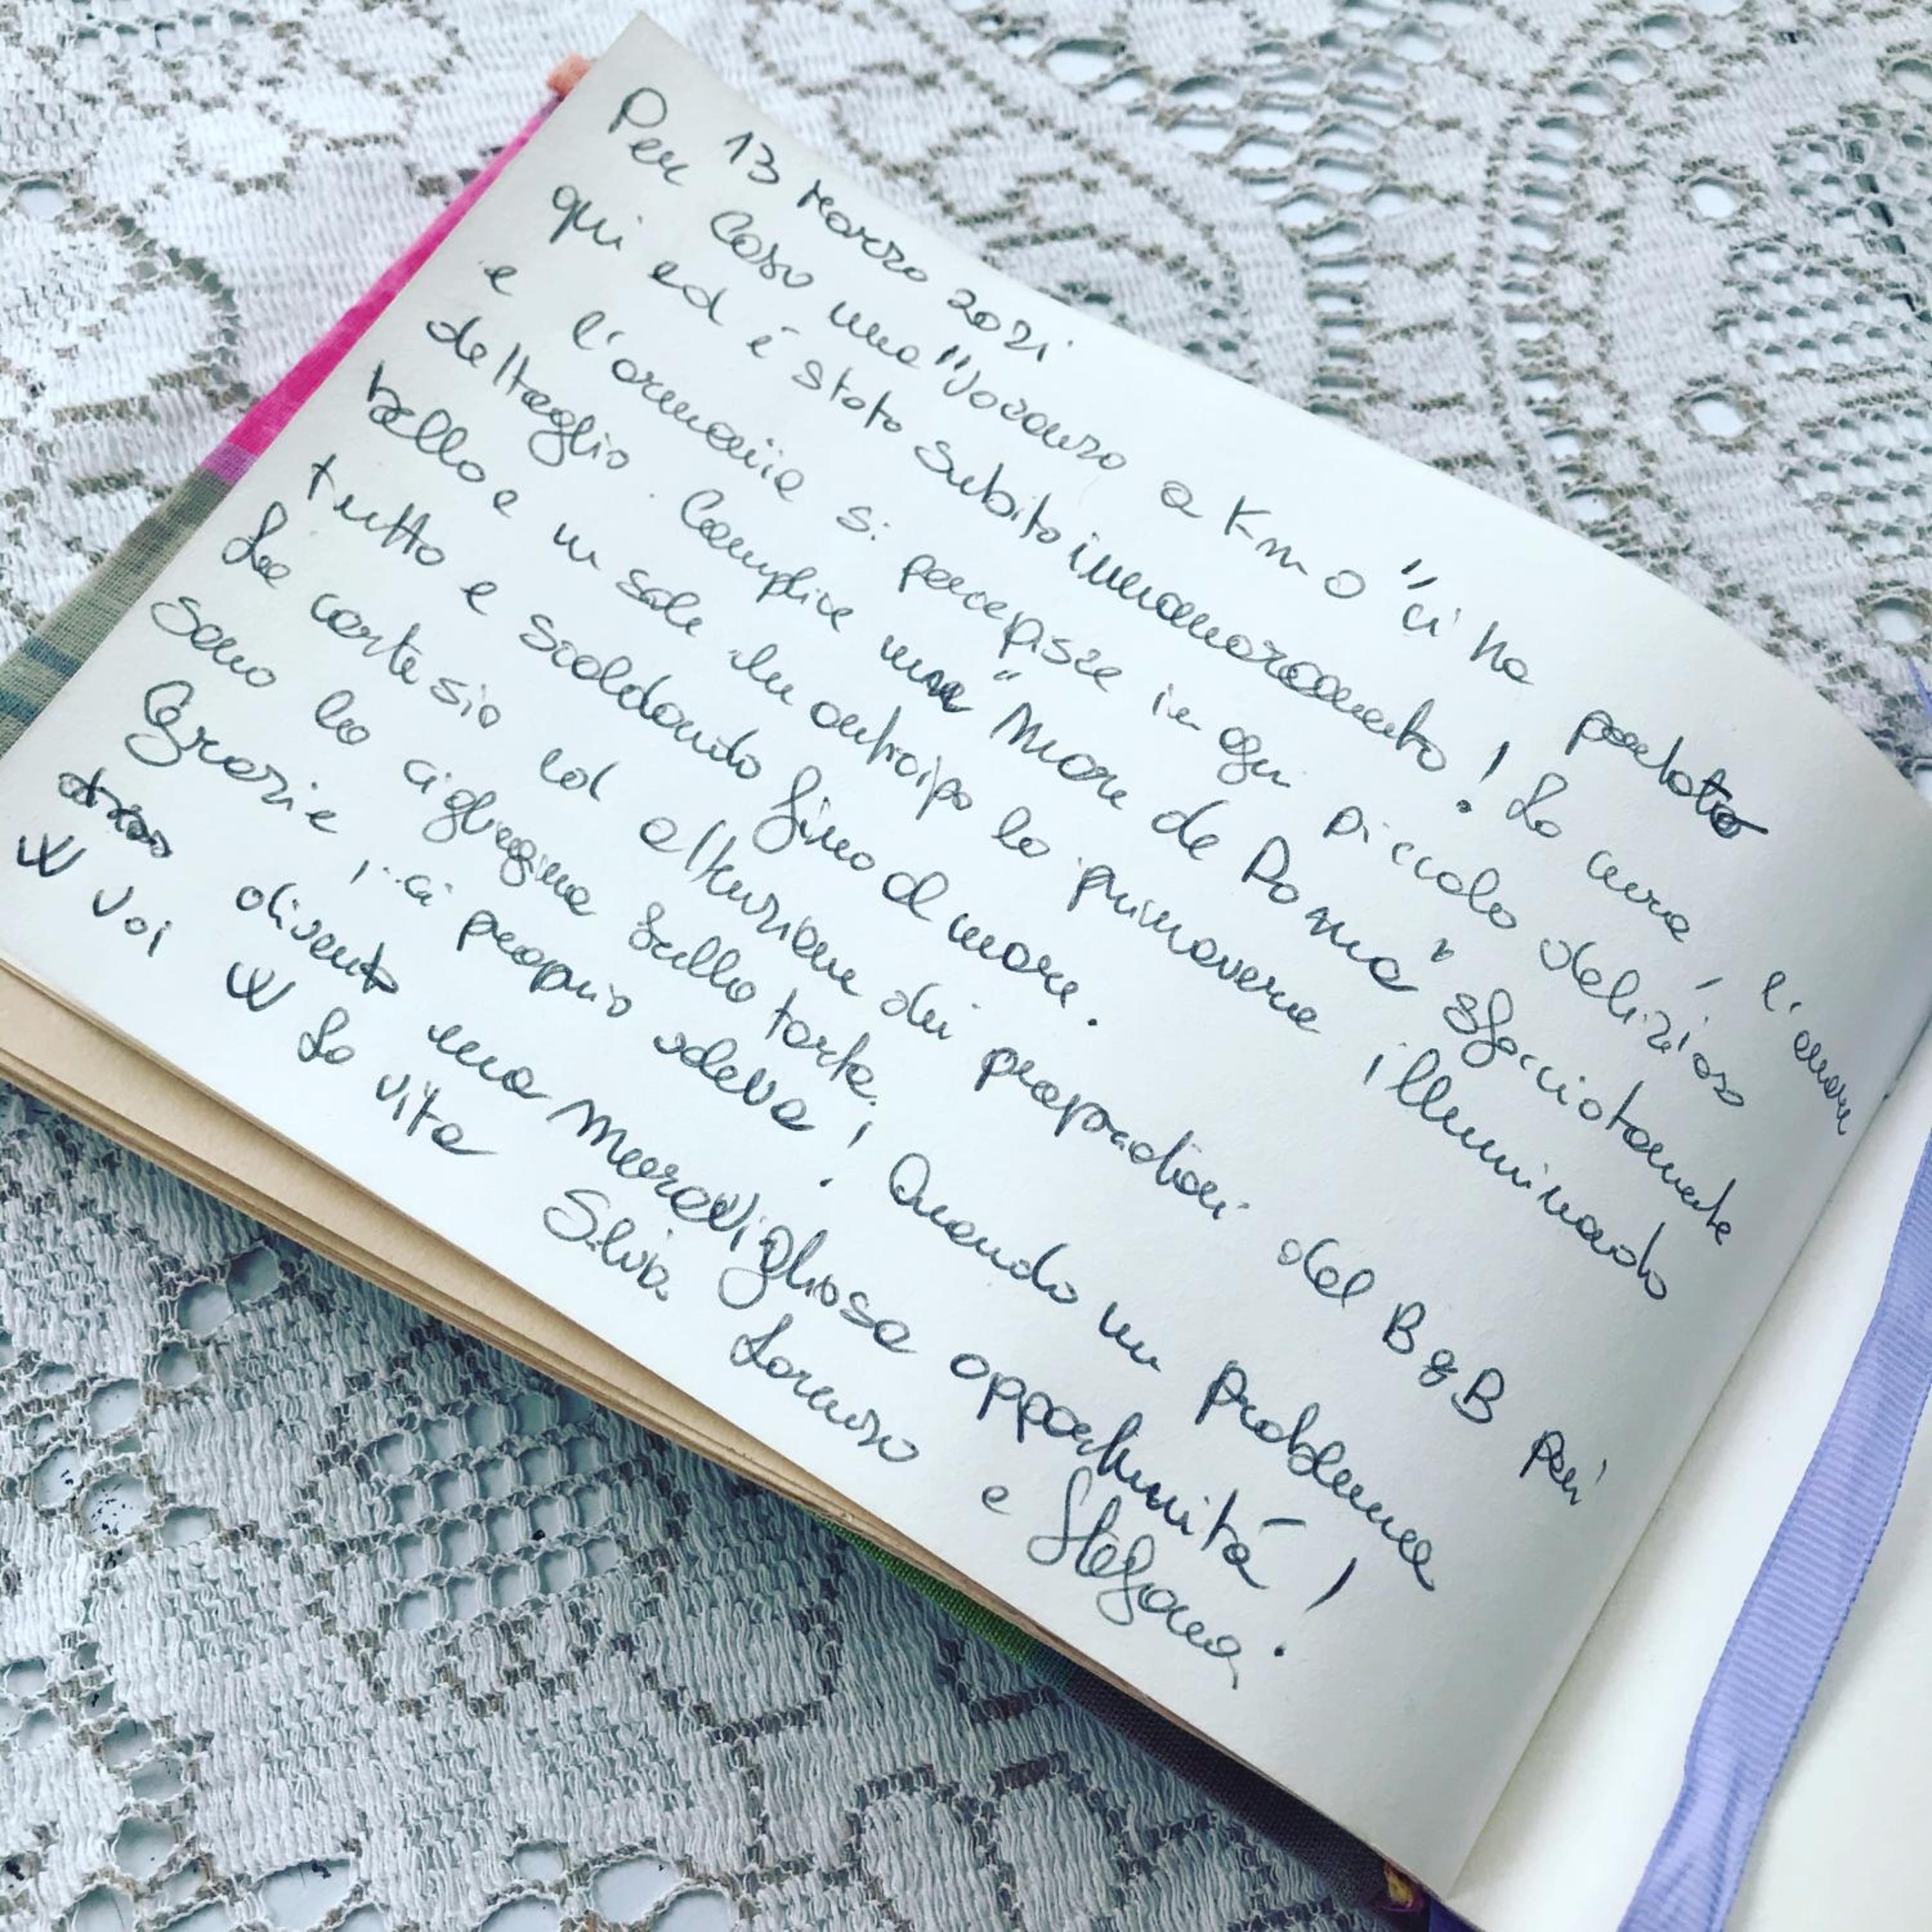 13 Marzo 2021.
Per caso una "vacanza a Km 0" ci ha portato
qui ed è stato subito innamoramento! La cura, l'amore
e l'armonia si percepisce in ogni piccolo delizioso
dettaglio. Complice un "Mare de Roma" sfacciatamente
bello e un sole in anticipo la primavera illuminando
tutto e scaldando fino al mare.
La cortesia ed attenzione dei proprietari del B&B poi
sono la ciliegina sulla torta.
Grazie, ci proprio! Quando un problema
diventa una meravigliosa opportunità!
W voi W la vita
Silvia Lorenzo e Stefania.